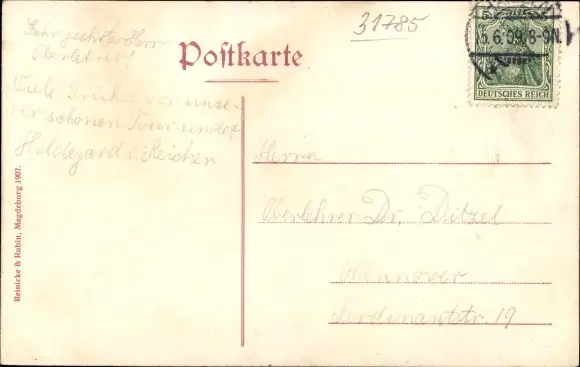 Sehr geehrter Herr
Oberlehrer!
Viele Grüße von unse-
rer schönen Tour sendet
Hildegard v. Reichen
31785
Postkarte
5.6.09.8-9N.
DEUTSCHES REICH
Herrn
Oberlehrer Dr. Ditzel
Hannover
Ferdinandstr. 19
Reinicke & Rubin, Magdeburg 1907.